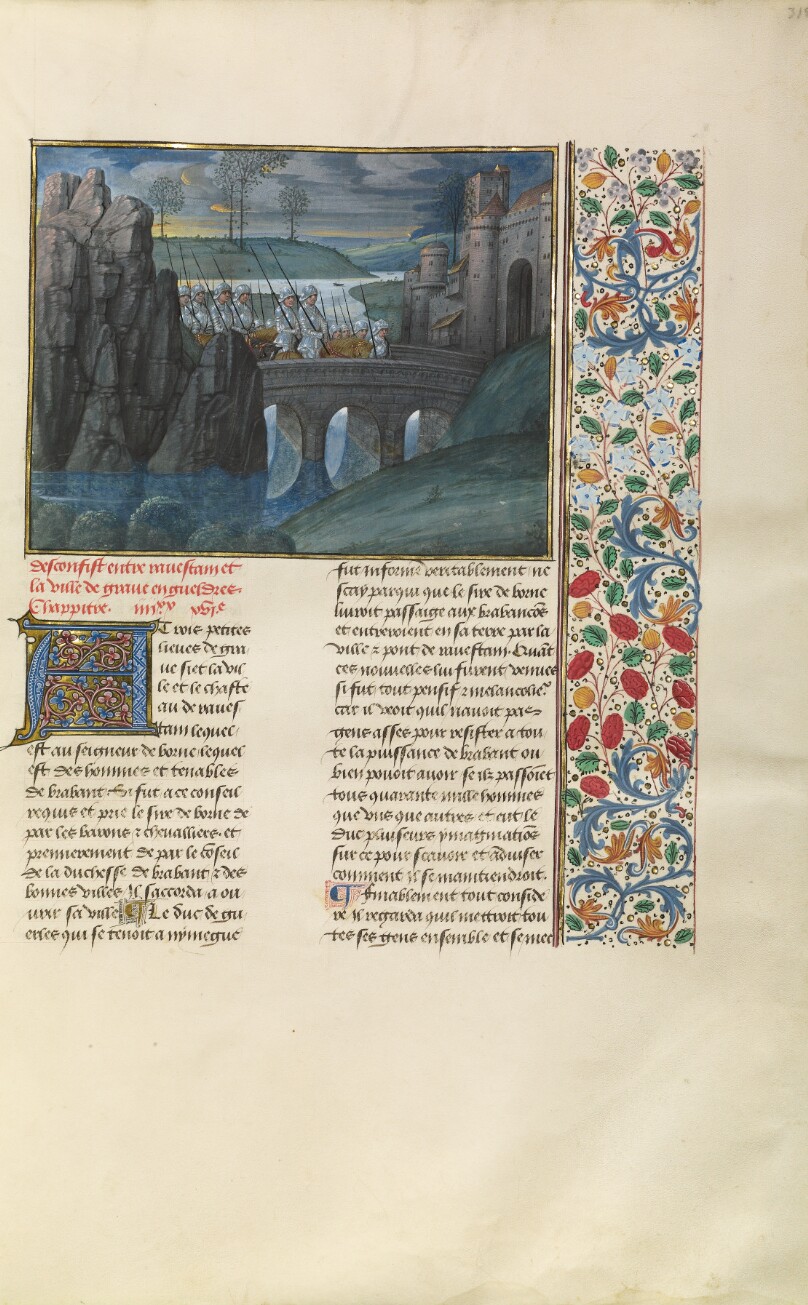 318
desconfist entre ravestain et
la ville de grave en gueldres.
Chappitre. iiijxx xvje
A Trois petites
lieues de gra
ue siet la vil
le et le chaste
au de raues
tain lequel
est au seigneur de borne lequel
est des hommes et tenables
de brabant Si fut a ce conseil
requis et prie le sire de borne de
par les barons ⁊ chevalliers. et
premierement de par le cōseil
de la duchesse de brabant ⁊ des
bonnes villes Il saccorda a ou
urir sa ville ¶ Le duc de gu
erles qui se tenoit a nymegue
fut informe veritablement ne
scay par qui que le sire de borne
livroit passaige aux brabancōs
et entreroient en sa terre par la
ville ⁊ pont de ravestain. Quāt
ces nouvelles lui furent venues
si fut tout pensif ⁊ melancolieux
car il veoit quil nauoit pas
gens asses pour resister a tou
te la puissance de brabant ou
bien pouoit auoir se ilz passoiēt
tous quarante mille hommes
que vns que autres et eut le
duc pluseurs ymaginatiōs
sur ce pour scauoir et aduiser
comment il se maintiendroit.
¶ finablement tout conside
re il regarda quil mettroit tou
tes ses gens ensemble et se mec